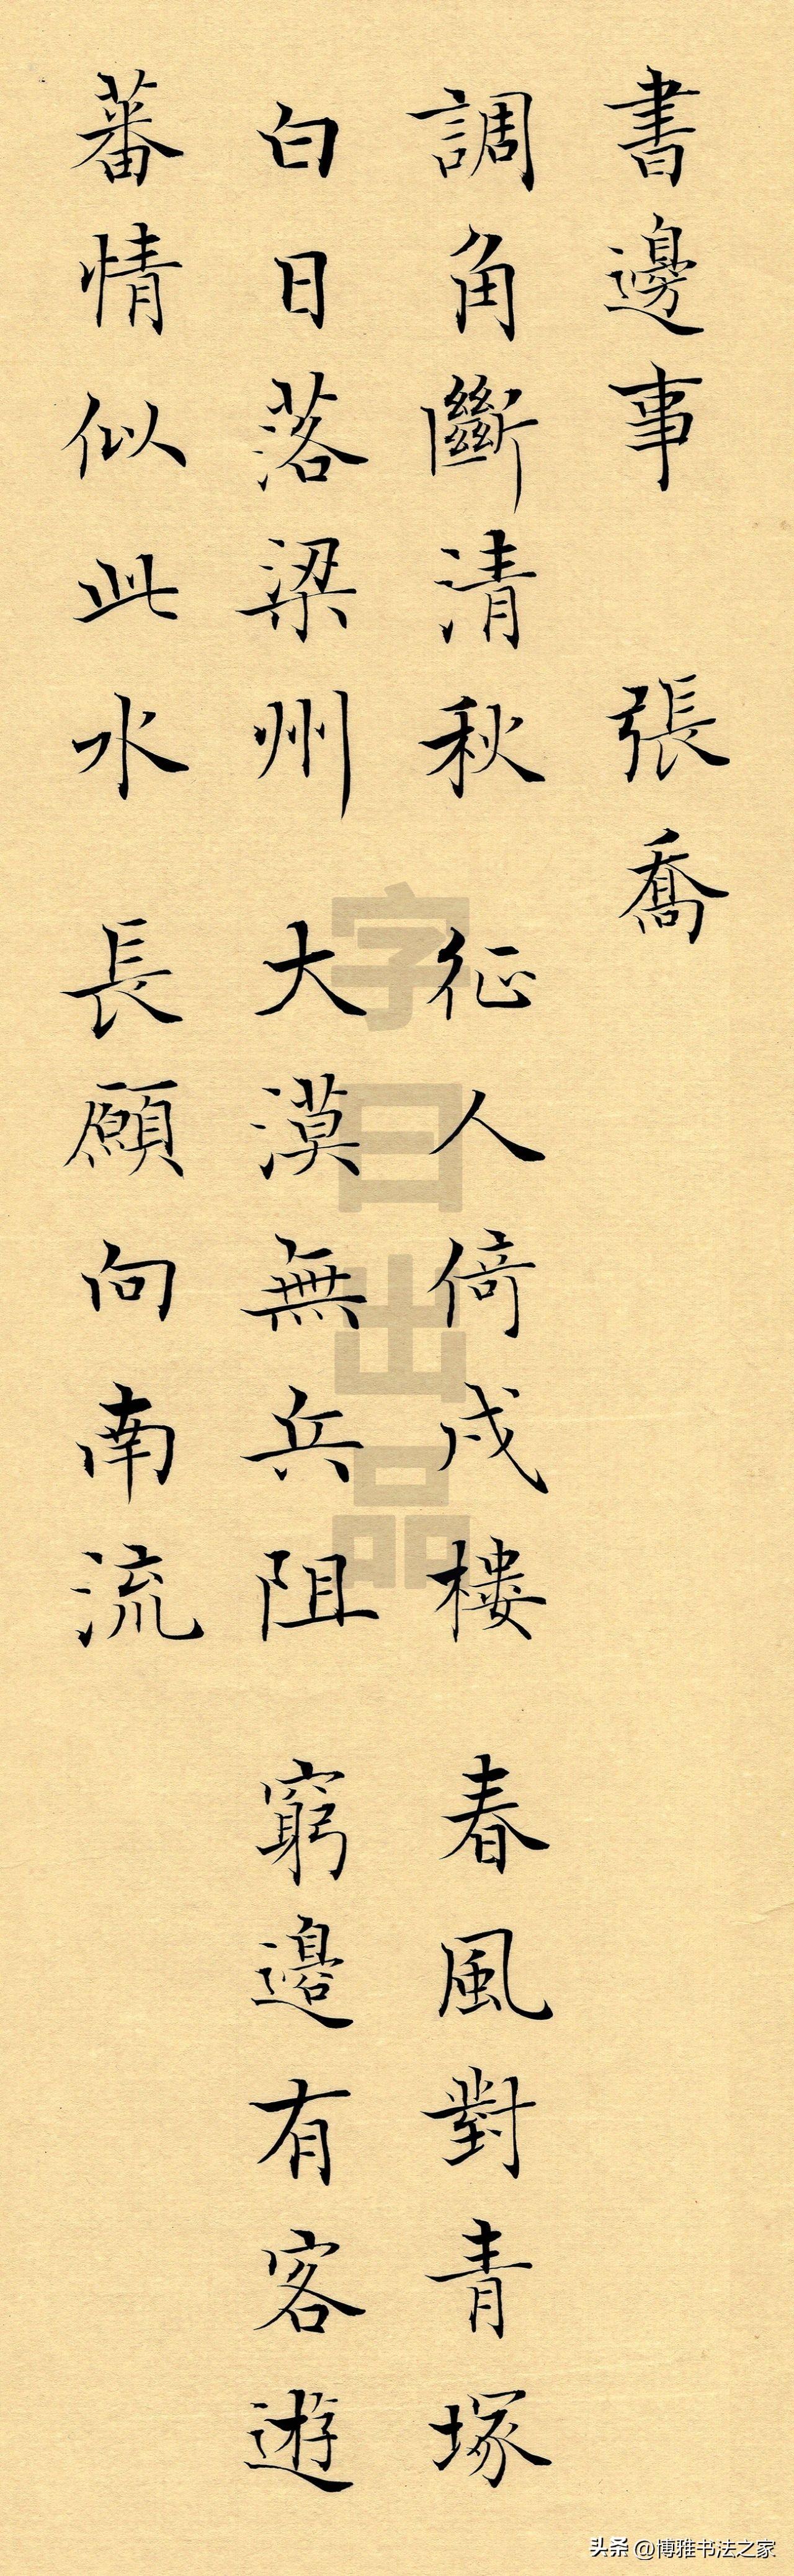 書邊事 張喬
調角斷清秋 征人倚戍樓 春風對青塚
白日落梁州 大漠無兵阻 窮邊有客遊
蕃情似此水 長願向南流
字曰出品
头条 @博雅书法之家